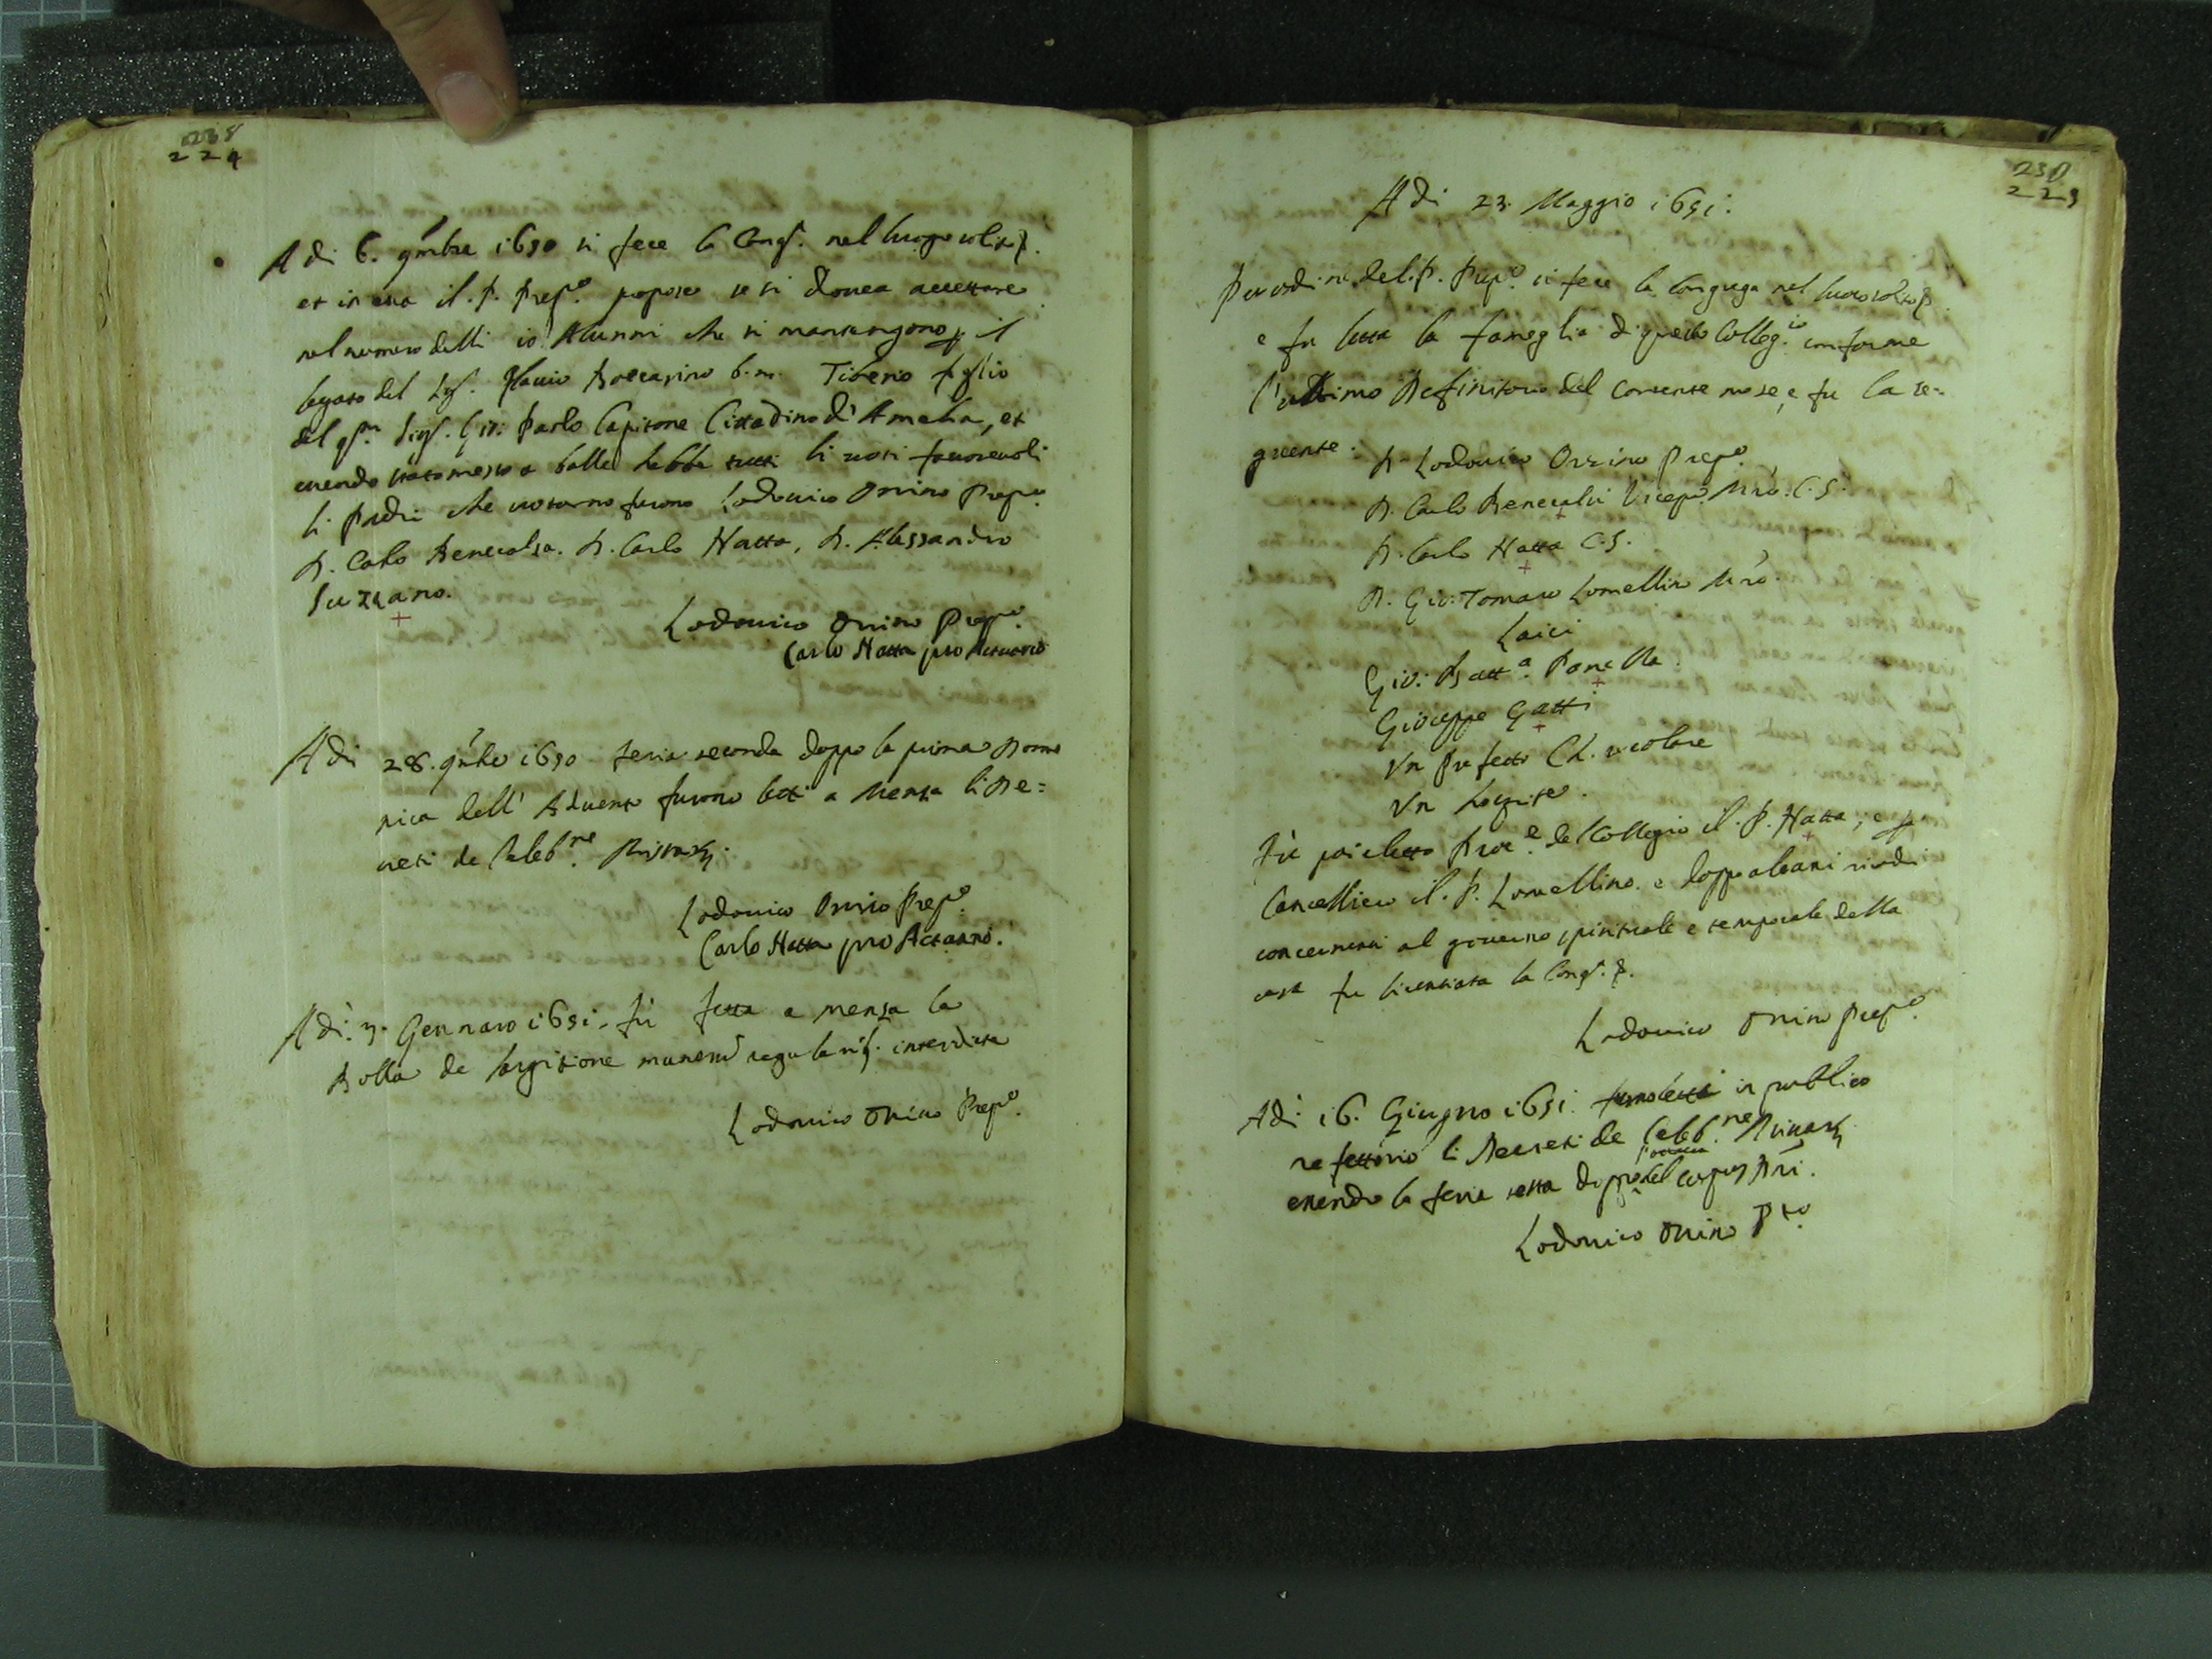 238
224
Adi 6. 9mbre 1650 si fece la Congr. nel luogo solito
et in essa il P. Prep.o propose se si dovea accettare
nel numero delli 10 Alunni che si mantengono p il
legato del Sig. Flavio Boccarino b.m. Tiberio figlio
del qm Sigr. Gio: Paolo Capitone Cittadino d'Amelia, et
avendo messo a balle hebbe tutti li voti favorevoli
li Padri che votarno furono Lodovico Orsino Prep.o
P. Carlo Benevolza. P. Carlo Natta, P. Alessandro
Suzzano.
Lodovico Orsino Prep.o
Carlo Natta pro Actuario
Adi 28. 9mbre 1650 feria seconda doppo la prima Dome
nica dell' Advento furono letti a Mensa li De=
creti de Celeb.ne Missarum.
Lodovico Orsino Prep.o
Carlo Natta pro Actuario.
Adi: 3. Gennaro 1651. fù letta a mensa la
Bolla de largitione munerum regularib. interdicta
Lodovico Orsino Prep.o
230
229
Adi 23. Maggio 1651.
Per ordine del P. Prep.o si fece la Congrega nel luoco solito
e fu letta la fameglia di questo Colleg.io conforme
l'ultimo Definitorio del corrente mese, e fu la se=
guente. P. Lodovico Orsino Prep.o
P. Carlo Benevolzi Vicep. Mro. C.S.
P. Carlo Natta C.S.
P. Gio: Tomaso Lomellino Mro.
Laici
Gio: Batt.a Panella
Gioseppe Gatti
Un Prefetto Ch. secolare
Un
Fù poi eletto Proc.e del Collegio il P. Natta, e p
Cancelliero il P. Lomellino. e doppo alcuni ricordi
concernenti al governo spirituale e temporale della
casa fu licentiata la Congr.
Lodovico Orsino Prep.o
Adi 16. Giugno 1651. furno letti in publico
refettorio li Decreti de Celeb.ne Missarum
essendo la feria sesta doppo l'ottava del corpus Dni.
Lodovico Orsino P.to